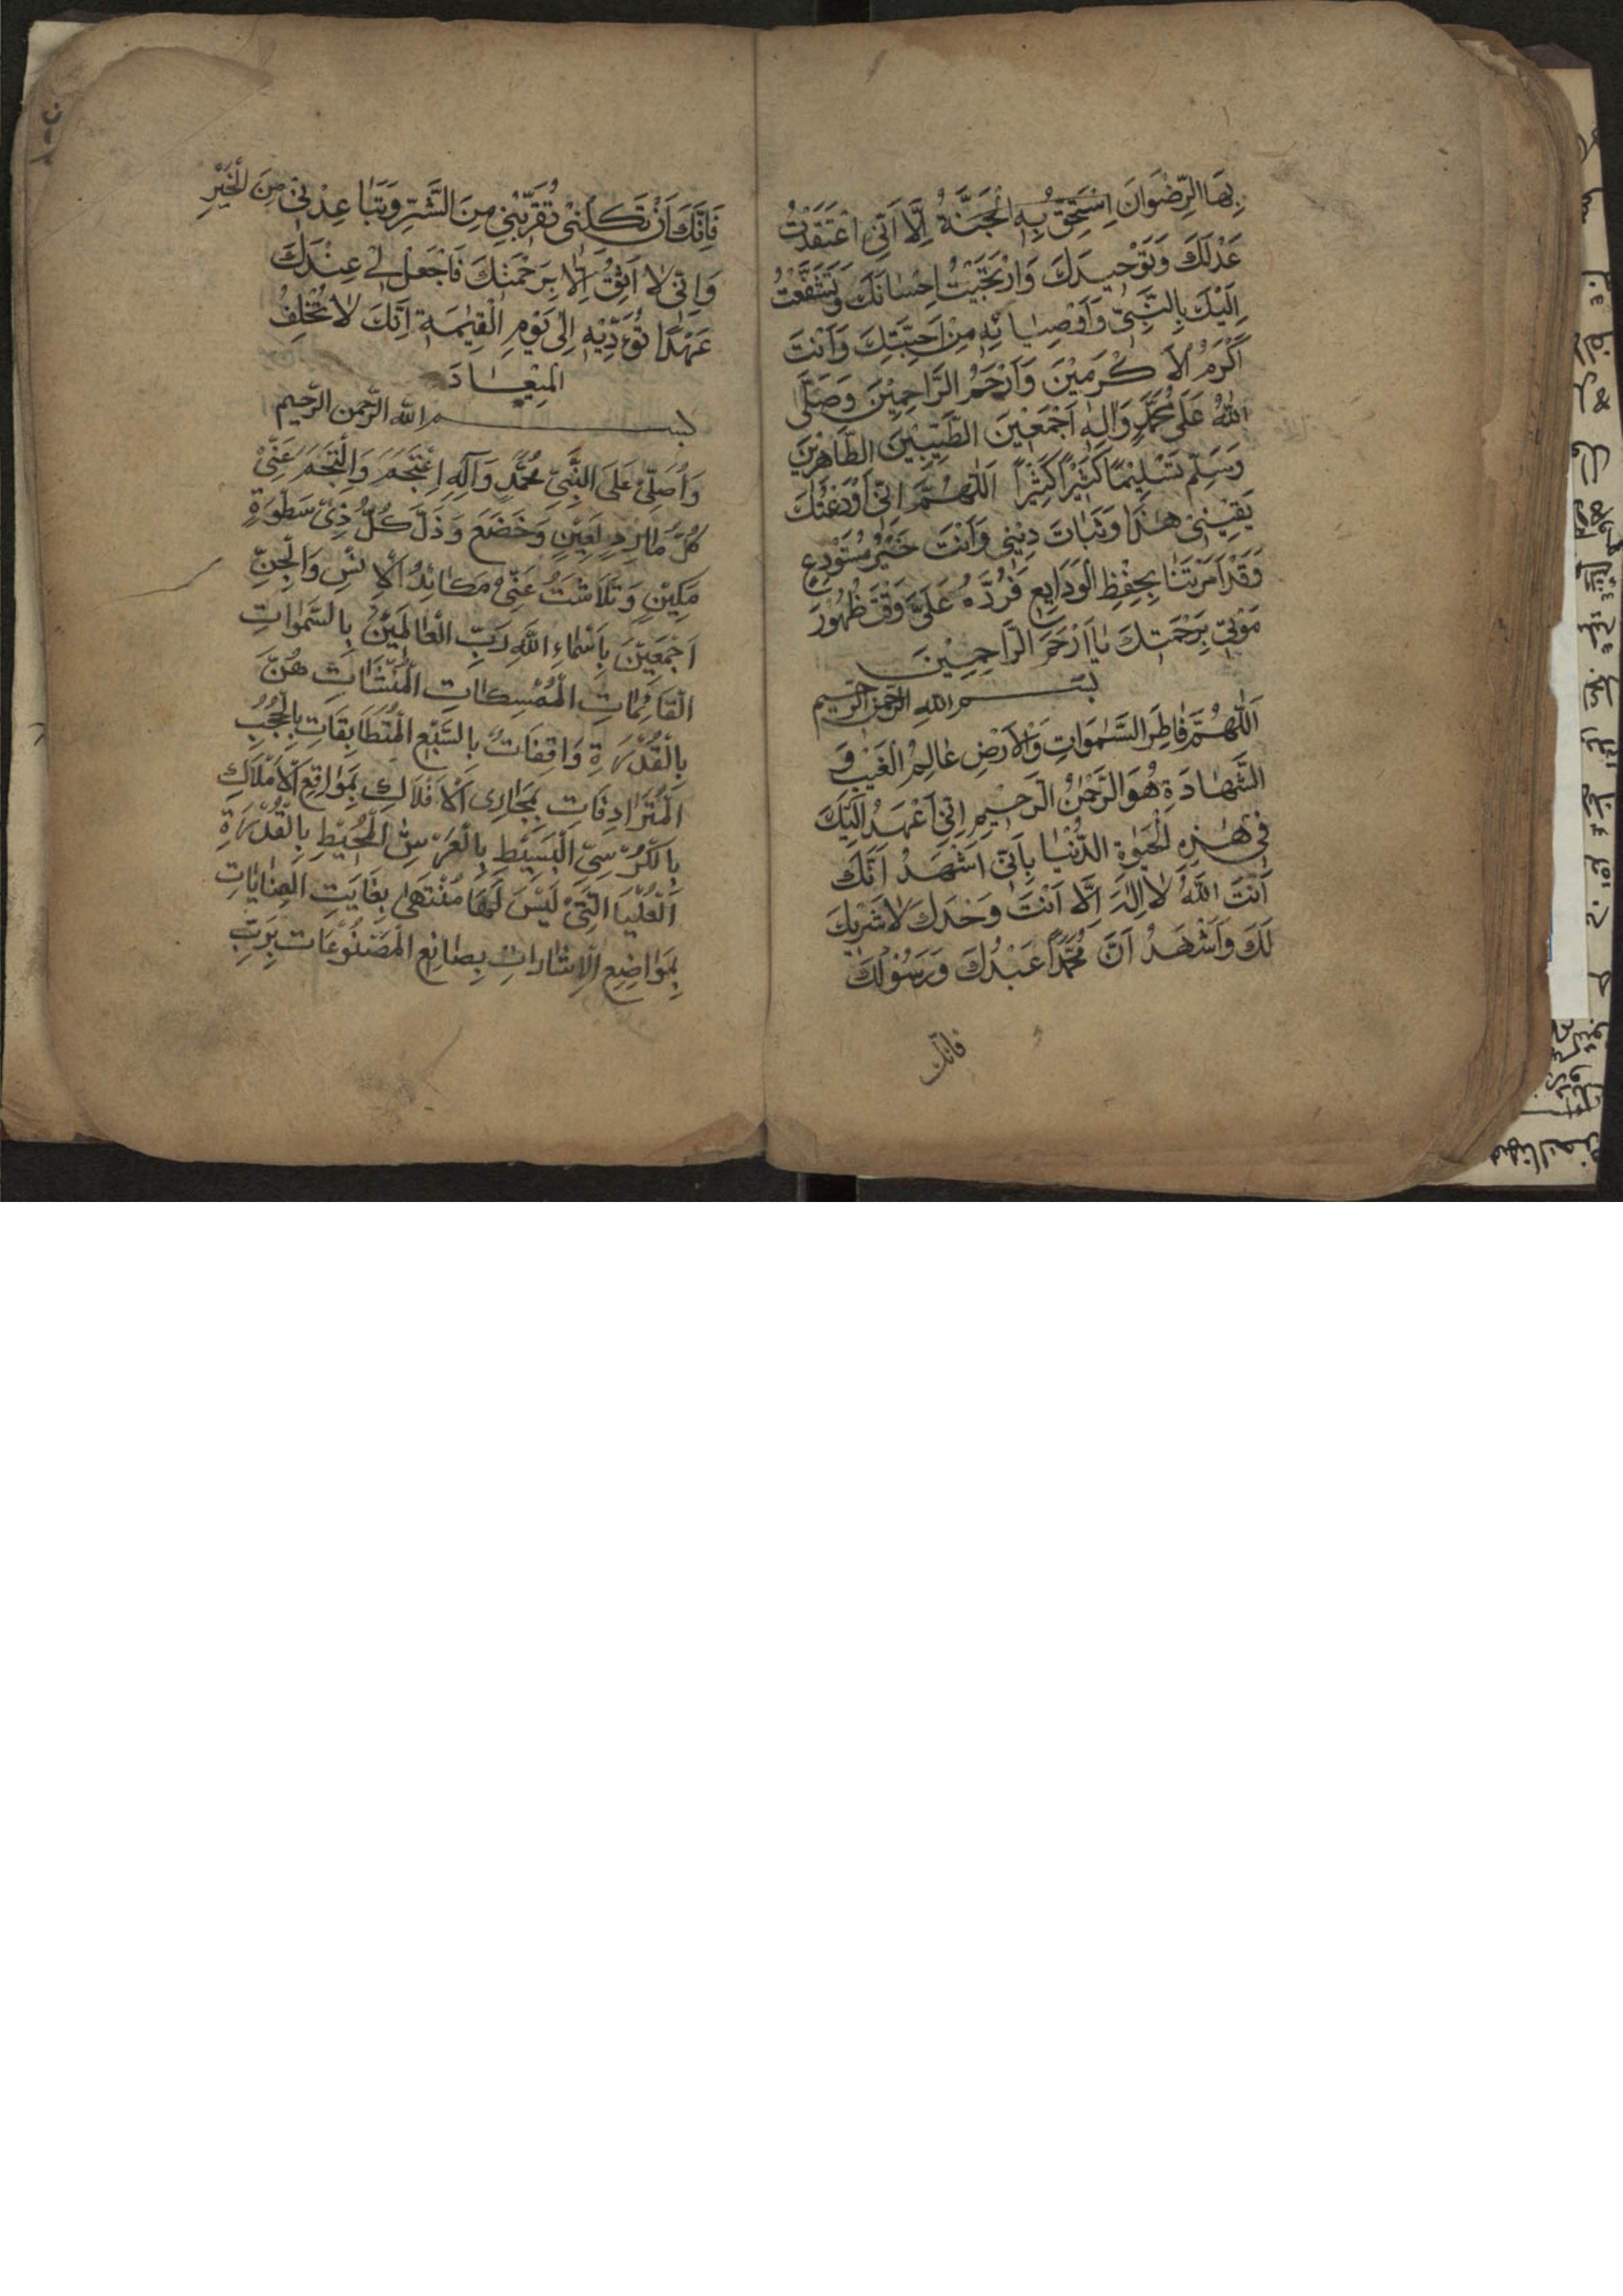 بِهَا الرِّضْوَانَ اَسْتَحِقُّ بِهِ الْجَنَّةَ اِلَّا اَنِّي اعْتَقَدْتُ
عَدْلَكَ وَتَوْحِيدَكَ وَارْتَجَيْتُ اِحْسَانَكَ وَتَشَفَّعْتُ
اِلَيْكَ بِالنَّبِيِّ وَاَوْصِيَائِهِ مِنْ اَحِبَّتِكَ وَاَنْتَ
اَكْرَمُ الْاَكْرَمِيْنَ وَاَرْحَمُ الرَّاحِمِيْنَ وَصَلَّى
اللهُ عَلَى مُحَمَّدٍ وَاٰلِهِ اَجْمَعِيْنَ الطَّيِّبِيْنَ الطَّاهِرِيْنَ
وَسَلِّمْ تَسْلِيْمًا كَثِيْرًا كَثِيْرًا اَللّٰهُمَّ اِنِّي اَوْدَعْتُكَ
يَقِيْنِيْ هٰذَا وَثَبَاتَ دِيْنِي وَاَنْتَ خَيْرُ مُسْتَوْدَعٍ
وَقَدْ اَمَرْتَنَا بِحِفْظِ الْوَدَايِعِ فَرُدَّهُ عَلَيَّ وَقْتَ ظُهُوْرِ
مَوْتِي بِرَحْمَتِكَ يَا اَرْحَمَ الرَّاحِمِيْنَ
بسم الله الرحمن الرحيم
اَللّٰهُمَّ فَاطِرَ السَّمٰوَاتِ وَالْاَرْضِ عَالِمُ الْغَيْبِ وَ
الشَّهَادَةِ هُوَ الرَّحْمٰنُ الرَّحِيْمِ اِنِّي اَعْهَدُ اِلَيْكَ
فِي هٰذِهِ الْحَيٰوةِ الدُّنْيَا بِاَنِّي اَشْهَدُ اَنَّكَ
اَنْتَ اللهُ لَا اِلٰهَ اِلَّا اَنْتَ وَحْدَكَ لَا شَرِيْكَ
لَكَ وَاَشْهَدُ اَنَّ مُحَمَّدًا عَبْدُكَ وَرَسُوْلُكَ
فانّك
فَاِنَّكَ اَنْ تَكِلْنِيْ تُقَرِّبْنِي مِنَ الشَّرِّ وَتُبَاعِدْنِي مِنَ الْخَيْرِ
وَاِنِّي لَا اَثِقُ اِلَّا بِرَحْمَتِكَ فَاجْعَلْ لِيْ عِنْدَكَ
عَهْدًا تُؤَدِّيْهِ اِلَى يَوْمِ الْقِيٰمَةِ اِنَّكَ لَا تُخْلِفُ
الْمِيْعَادَ
بسم الله الرحمن الرحيم
وَاُصَلِّيْ عَلَى النَّبِيِّ مُحَمَّدٍ وَآلِهِ وَالْتَجَمَ عَنِّيْ
كُلُّ مَارِدٍ لَعِيْنٍ وَخَضَعَ وَذَلَّ كُلُّ ذِيْ سَطْوَةٍ
مَكِيْنٍ وَتَلَاشَتْ عَنِّيْ مَكَائِدُ الْاِنْسِ وَالْجِنِّ
اَجْمَعِيْنَ بِاَسْمَاءِ اللهِ رَبِّ الْعَالَمِيْنَ بِالسَّمٰوَاتِ
الْقَائِمَاتِ الْمُمْسِكَاتِ الْمُنْشَاٰتِ هُنَّ
بِالْقُدْرَةِ وَاقِفَاتٌ بِالسَّبْعِ الْمُتَطَابِقَاتِ بِالْحُجُبِ
الْمُتَرَادِفَاتِ بِمَجَارِي الْاَفْلَاكِ بِمَوَاقِعِ الْاَمْلَاكِ
بِالْكُرْسِيِّ الْبَسِيْطِ بِالْعَرْشِ الْمُحِيْطِ بِالْقُدْرَةِ
الْعُلْيَا الَّتِيْ لَيْسَ لَهَا مُنْتَهٰى بِغَايَتِ
بِمَوَاضِعِ الْاِشَارَاتِ بِصَانِعِ الْمَصْنُوْعَاتِ بِرَبِّ